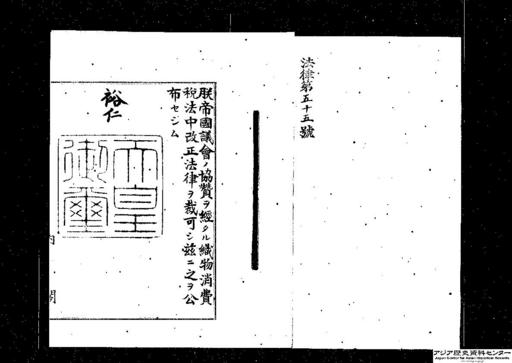 法律第五十五號
朕帝國議會ノ協贊ヲ經タル織物消費
稅法中改正法律ヲ裁可シ茲ニ之ヲ公
布セシム
裕仁
天皇
御璽
内閣
アジア歴史資料センター
Japan Center for Asian Historical Records